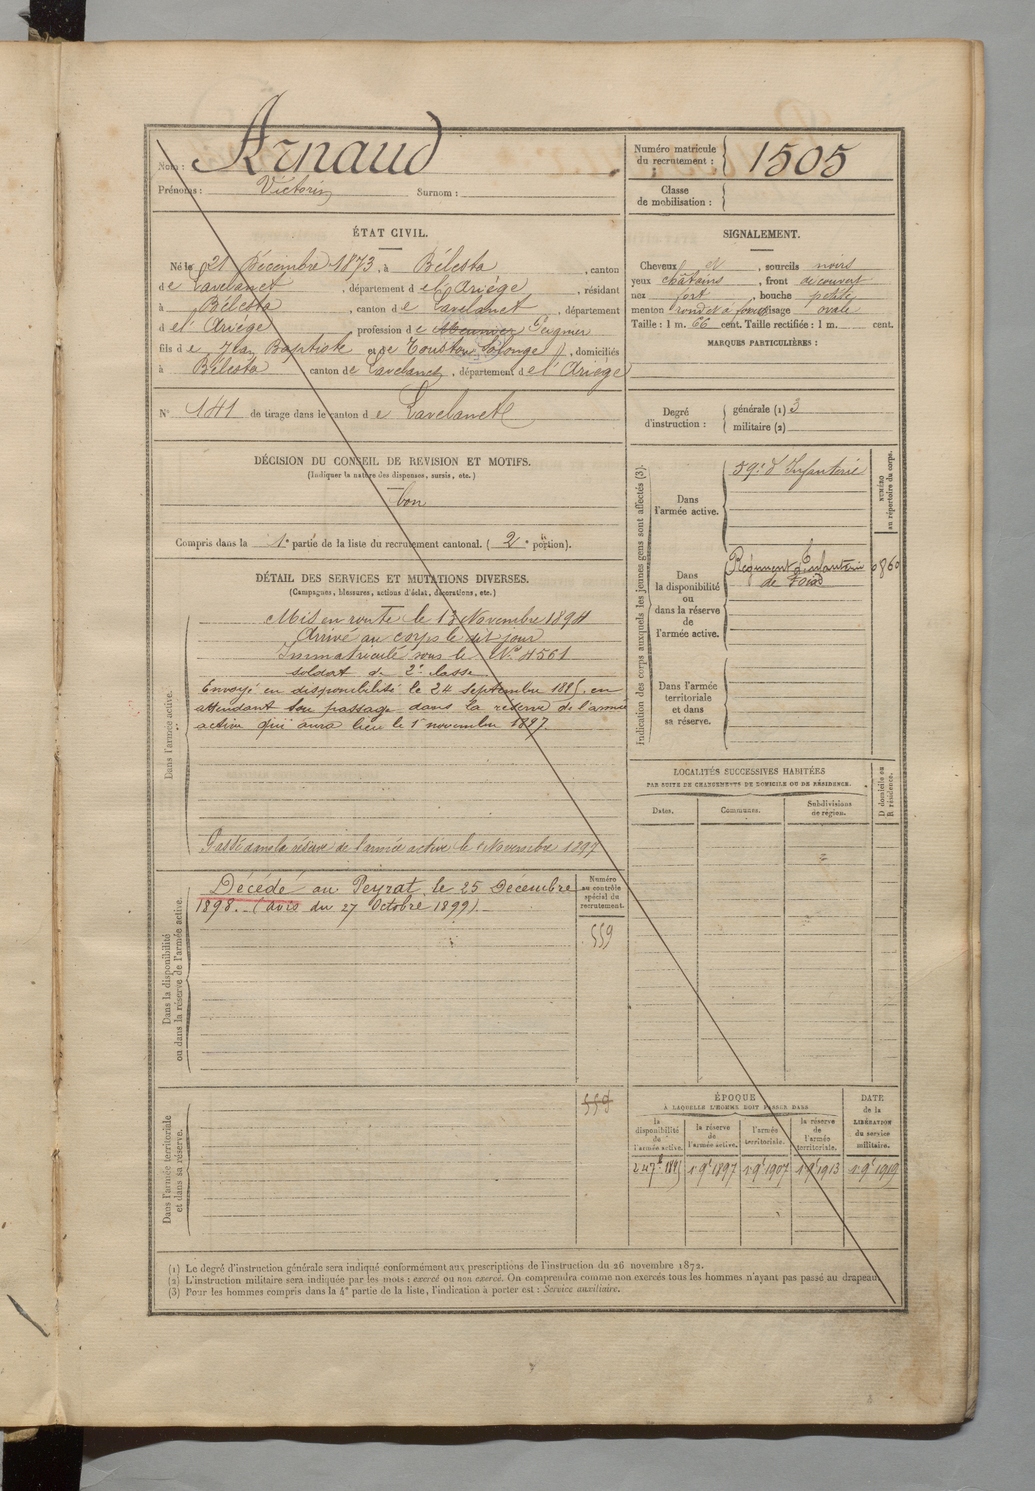 Nom : Arnaud
Prénoms : Victorin Surnom :
Numéro matricule du recrutement : 1505
Classe de mobilisation :
ÉTAT CIVIL.
Né le 21 Décembre 1873, à Bélesta, canton
de Lavelanet, département de l'Ariége, résidant
à Bélesta, canton de Lavelanet, département
de l'Ariége profession de Meunier Peignier
fils de Jean Baptiste et de Toustou Solonge, domiciliés
à Bélesta canton de Lavelanet, département de l'Ariége
N° 141 de tirage dans le canton de Lavelanet
SIGNALEMENT.
Cheveux et, sourcils noirs
yeux châtains, front découvert
nez fort, bouche petite
menton rond et à fossette visage ovale
Taille : 1 m. 66 cent. Taille rectifiée : 1 m. cent.
MARQUES PARTICULIÈRES :
Degré d'instruction : générale (1) 3
militaire (2)
DÉCISION DU CONSEIL DE REVISION ET MOTIFS.
(Indiquer la nature des dispenses, sursis, etc.)
bon
Compris dans la 1e partie de la liste du recrutement cantonal. (2e portion).
DÉTAIL DES SERVICES ET MUTATIONS DIVERSES.
(Campagnes, blessures, actions d'éclat, décorations, etc.)
Dans l'armée active.
Mis en route le 13 Novembre 1894
Arrivé au corps le dit jour
Immatriculé sous le N° 4561
soldat de 2e classe
Envoyé en disponibilité le 24 septembre 1895, en
attendant son passage dans la réserve de l'armée
active qui aura lieu le 1 novembre 1897.
Passé dans la réserve de l'armée active le 1 Novembre 1897
Dans la disponibilité ou dans la réserve de l'armée active.
Décédé au Peyrat, le 25 Décembre
1898. (avis du 27 Octobre 1899).
Numéro au contrôle spécial du recrutement.
559
Dans l'armée territoriale et dans sa réserve.
559
Indication des corps auxquels les jeunes gens sont affectés (3).
Dans l'armée active.
59e d'Infanterie
NUMÉRO au répertoire du corps.
Dans la disponibilité ou dans la réserve de l'armée active.
Régiment d'Infanterie
de Foix
6860
Dans l'armée territoriale et dans sa réserve.
LOCALITÉS SUCCESSIVES HABITÉES
PAR SUITE DE CHANGEMENTS DE DOMICILE OU DE RÉSIDENCE.
Dates. Communes. Subdivisions de région. D domicile ou R résidence.
ÉPOQUE
À LAQUELLE L'HOMME DOIT PASSER DANS
la disponibilité de l'armée active. la réserve de l'armée active. l'armée territoriale. la réserve de l'armée territoriale.
DATE de la LIBÉRATION du service militaire.
24 7bre 1895 1 9bre 1897 1 9bre 1907 1 9bre 1913 1 9bre 1919
(1) Le degré d'instruction générale sera indiqué conformément aux prescriptions de l'instruction du 26 novembre 1872.
(2) L'instruction militaire sera indiquée par les mots : exercé ou non exercé. On comprendra comme non exercés tous les hommes n'ayant pas passé au drapeau.
(3) Pour les hommes compris dans la 4e partie de la liste, l'indication à porter est : Service auxiliaire.